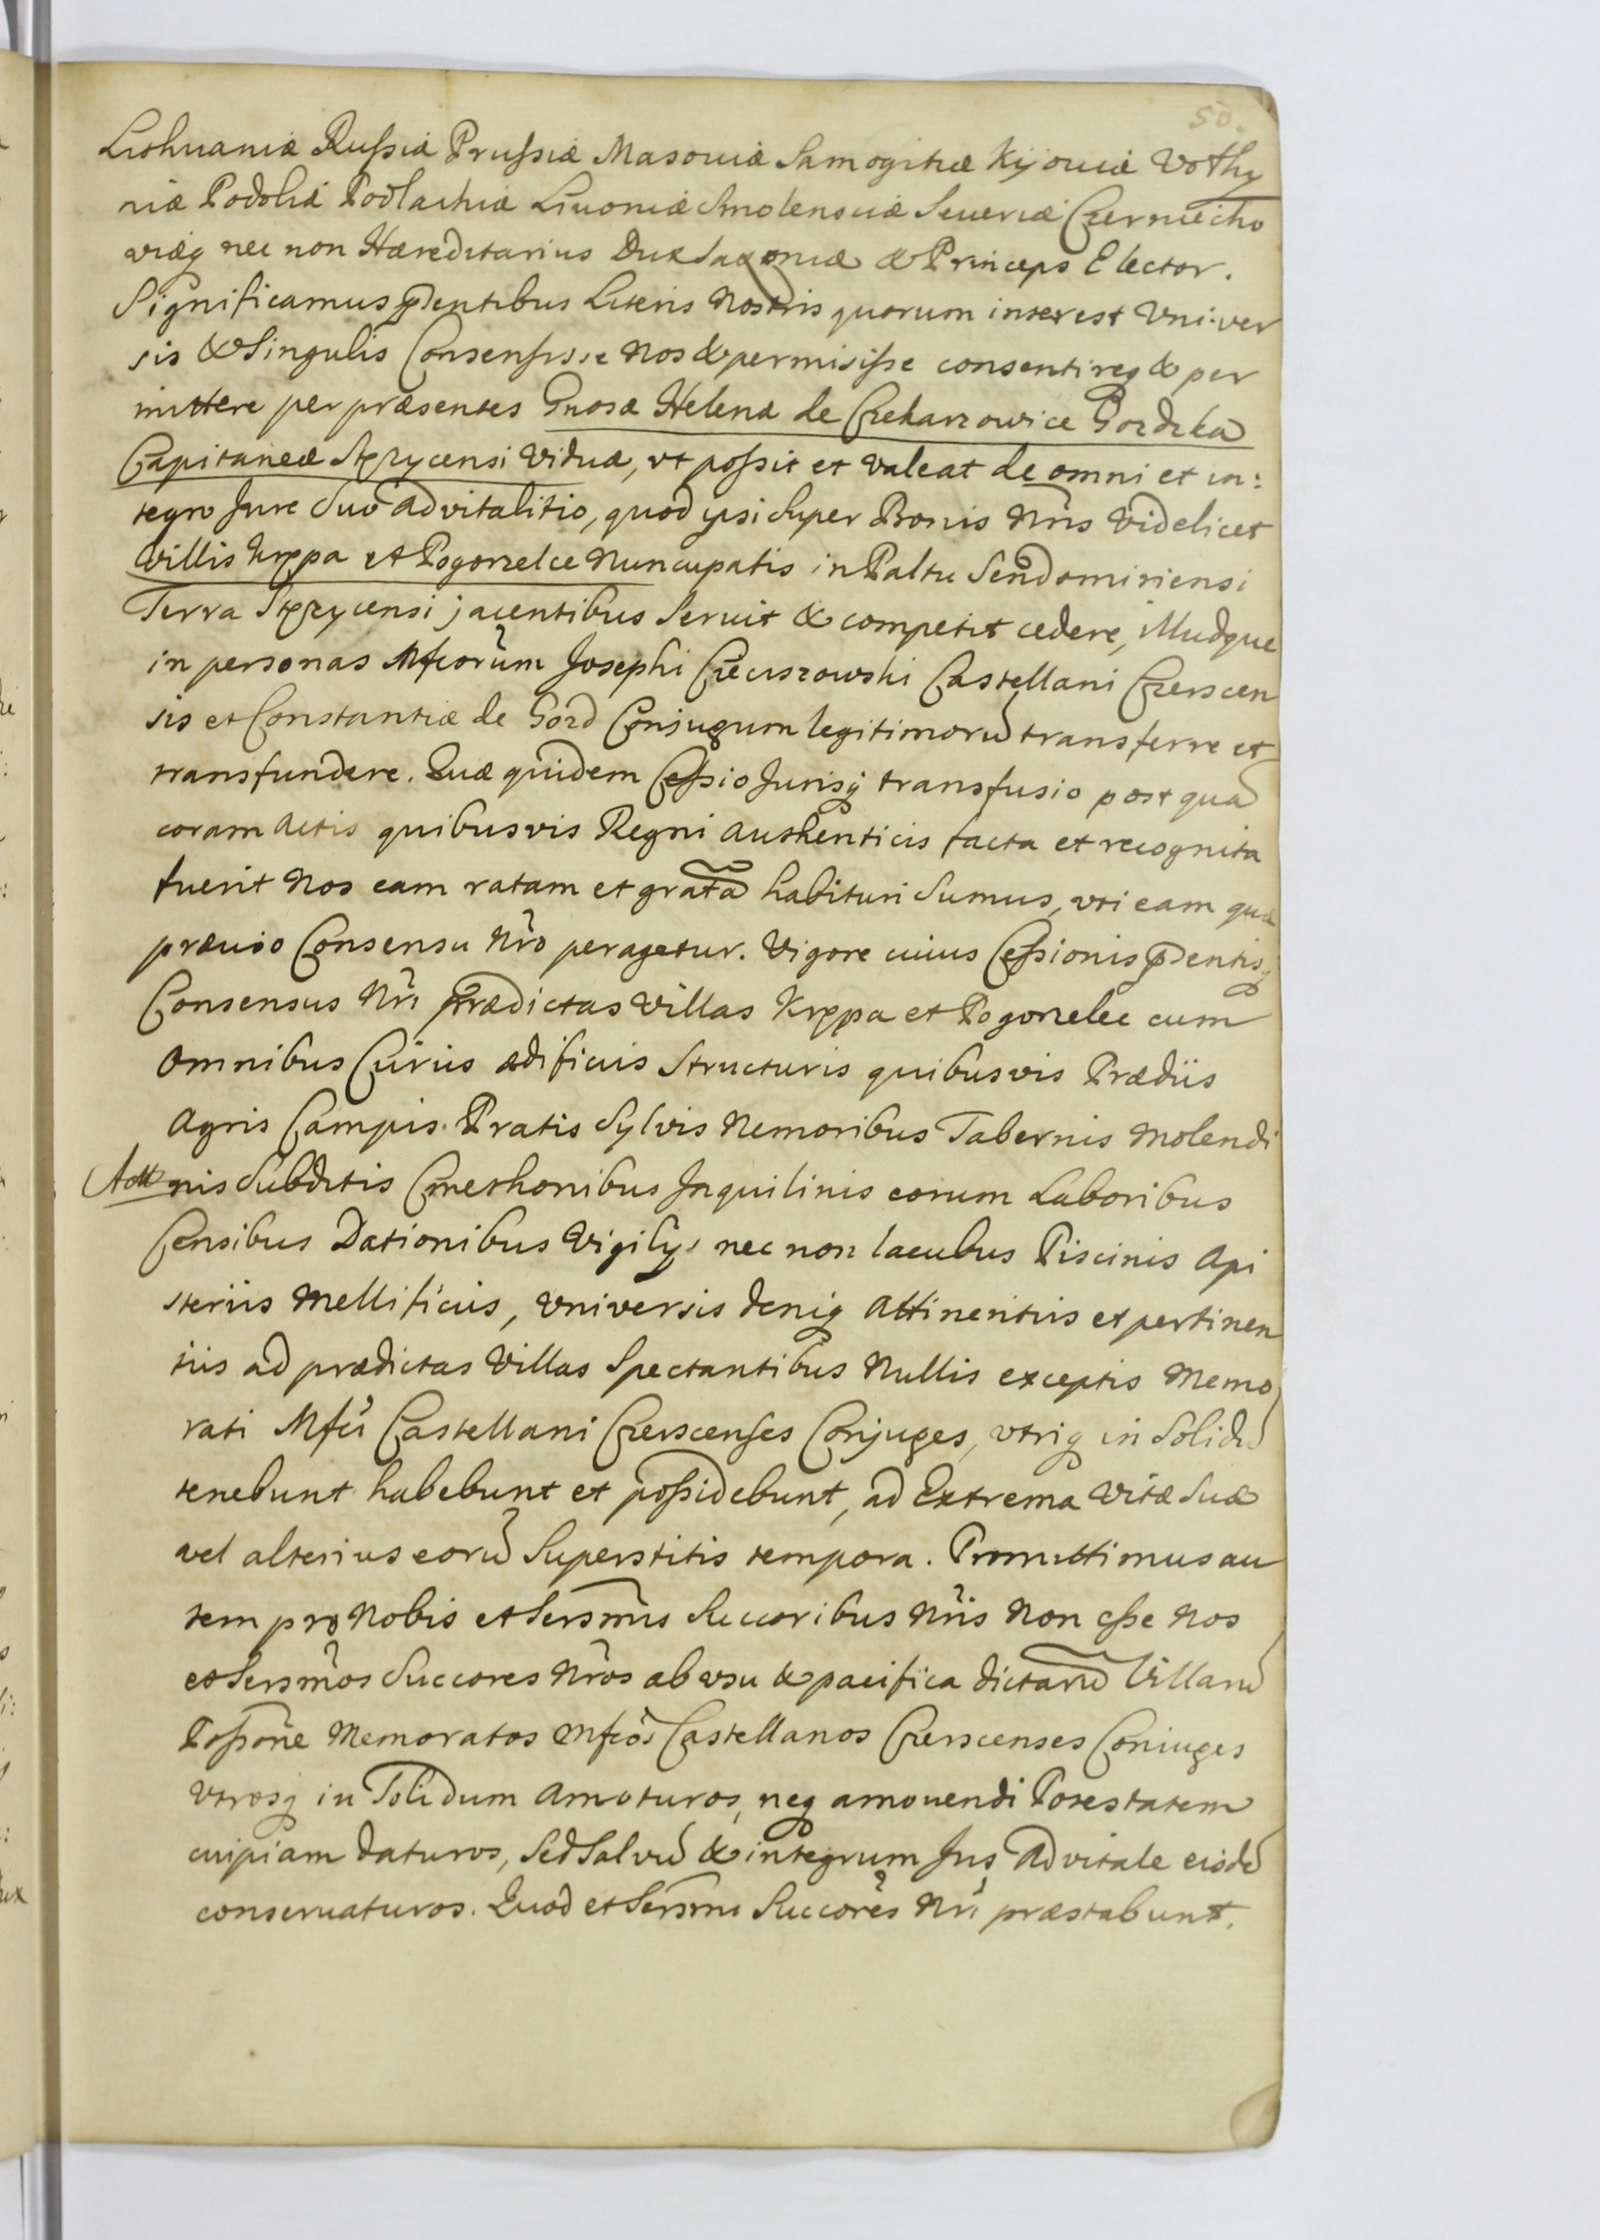 50.
Lithuaniæ Russiæ Prussiæ Masoviæ Samogitiæ Kijoviæ Volhy
niæ Podoliæ Podlachiæ Livoniæ Smolensciæ Severiæ Czerniecho
viæq nec non Hæreditarius Dux Saxoniæ & Princeps Elector.
Significamus pntibus Literis Nostris quorum interest Vniver
sis & Singulis Consensisse Nos & permisisse consentireq & per
mittere per præsentes Gnosæ Helenæ de Czekarzowice Gozdzka
Capitaneæ Stęzycensi Viduæ, vt possit et valeat de omni et in:
tegro Jure Suo advitalitio, quod ipsi Super Bonis Nris Videlicet
Villis Krępa et Pogorzelce Nuncupatis in Paltu Sendomiriensi
Terra Stęzycensi jacentibus Servit & competit cedere, illudque
in personas Mfcorum Josephi Cieciszowski Castellani Czerscen
sis et Constantiæ de Gozd Conjugum legitimorũ transferre et
transfundere. Quæ quidem Cessio Jurisq transfusio postquã
coram Actis quibusvis Regni authenticis facta et recognita
fuerit Nos eam ratam et gratã habituri Sumus, vti eam quæ
prævio Consensu Nro peragetur. Vigore cuius Cessionis pntisq
Consensus Nri prædictas Villas Krępa et Pogorzelec cum
omnibus Curiis ædificiis Structuris quibusvis Prædiis
Agris Campis Pratis Sylvis Nemoribus Tabernis Molendi
nis Subditis Cmethonibus Inquilinis eorum Laboribus
Censibus Dationibus Vigilijs nec non lacubus Piscinis Api
steriis Mellificiis, Vniversis deniq attinentiis et pertinen
tiis ad prædictas Villas Spectantibus Nullis exceptis Memo
rati Mfci Castellani Czerscenses Conjuges, vtriq in Solidũ
tenebunt habebunt et possidebunt, ad Extrema Vitæ Suæ
vel alterius eorũ Superstitis tempora. Promittimus au
tem pro Nobis et Sersmis Succoribus Nris Non esse Nos
et Sersmos Succores Nros ab vsu & pacifica dictarũ Villarũ
Possone Memoratos Mfcos Castellanos Czerscenses Coniuges
Vtrosq in Solidum amoturos, neq amovendi Potestatem
cuipiam daturos, Sed Salvũ & integrum Jus Advitale eisdẽ
conservaturos. Quod et Sersmi Succores Nri præstabunt.